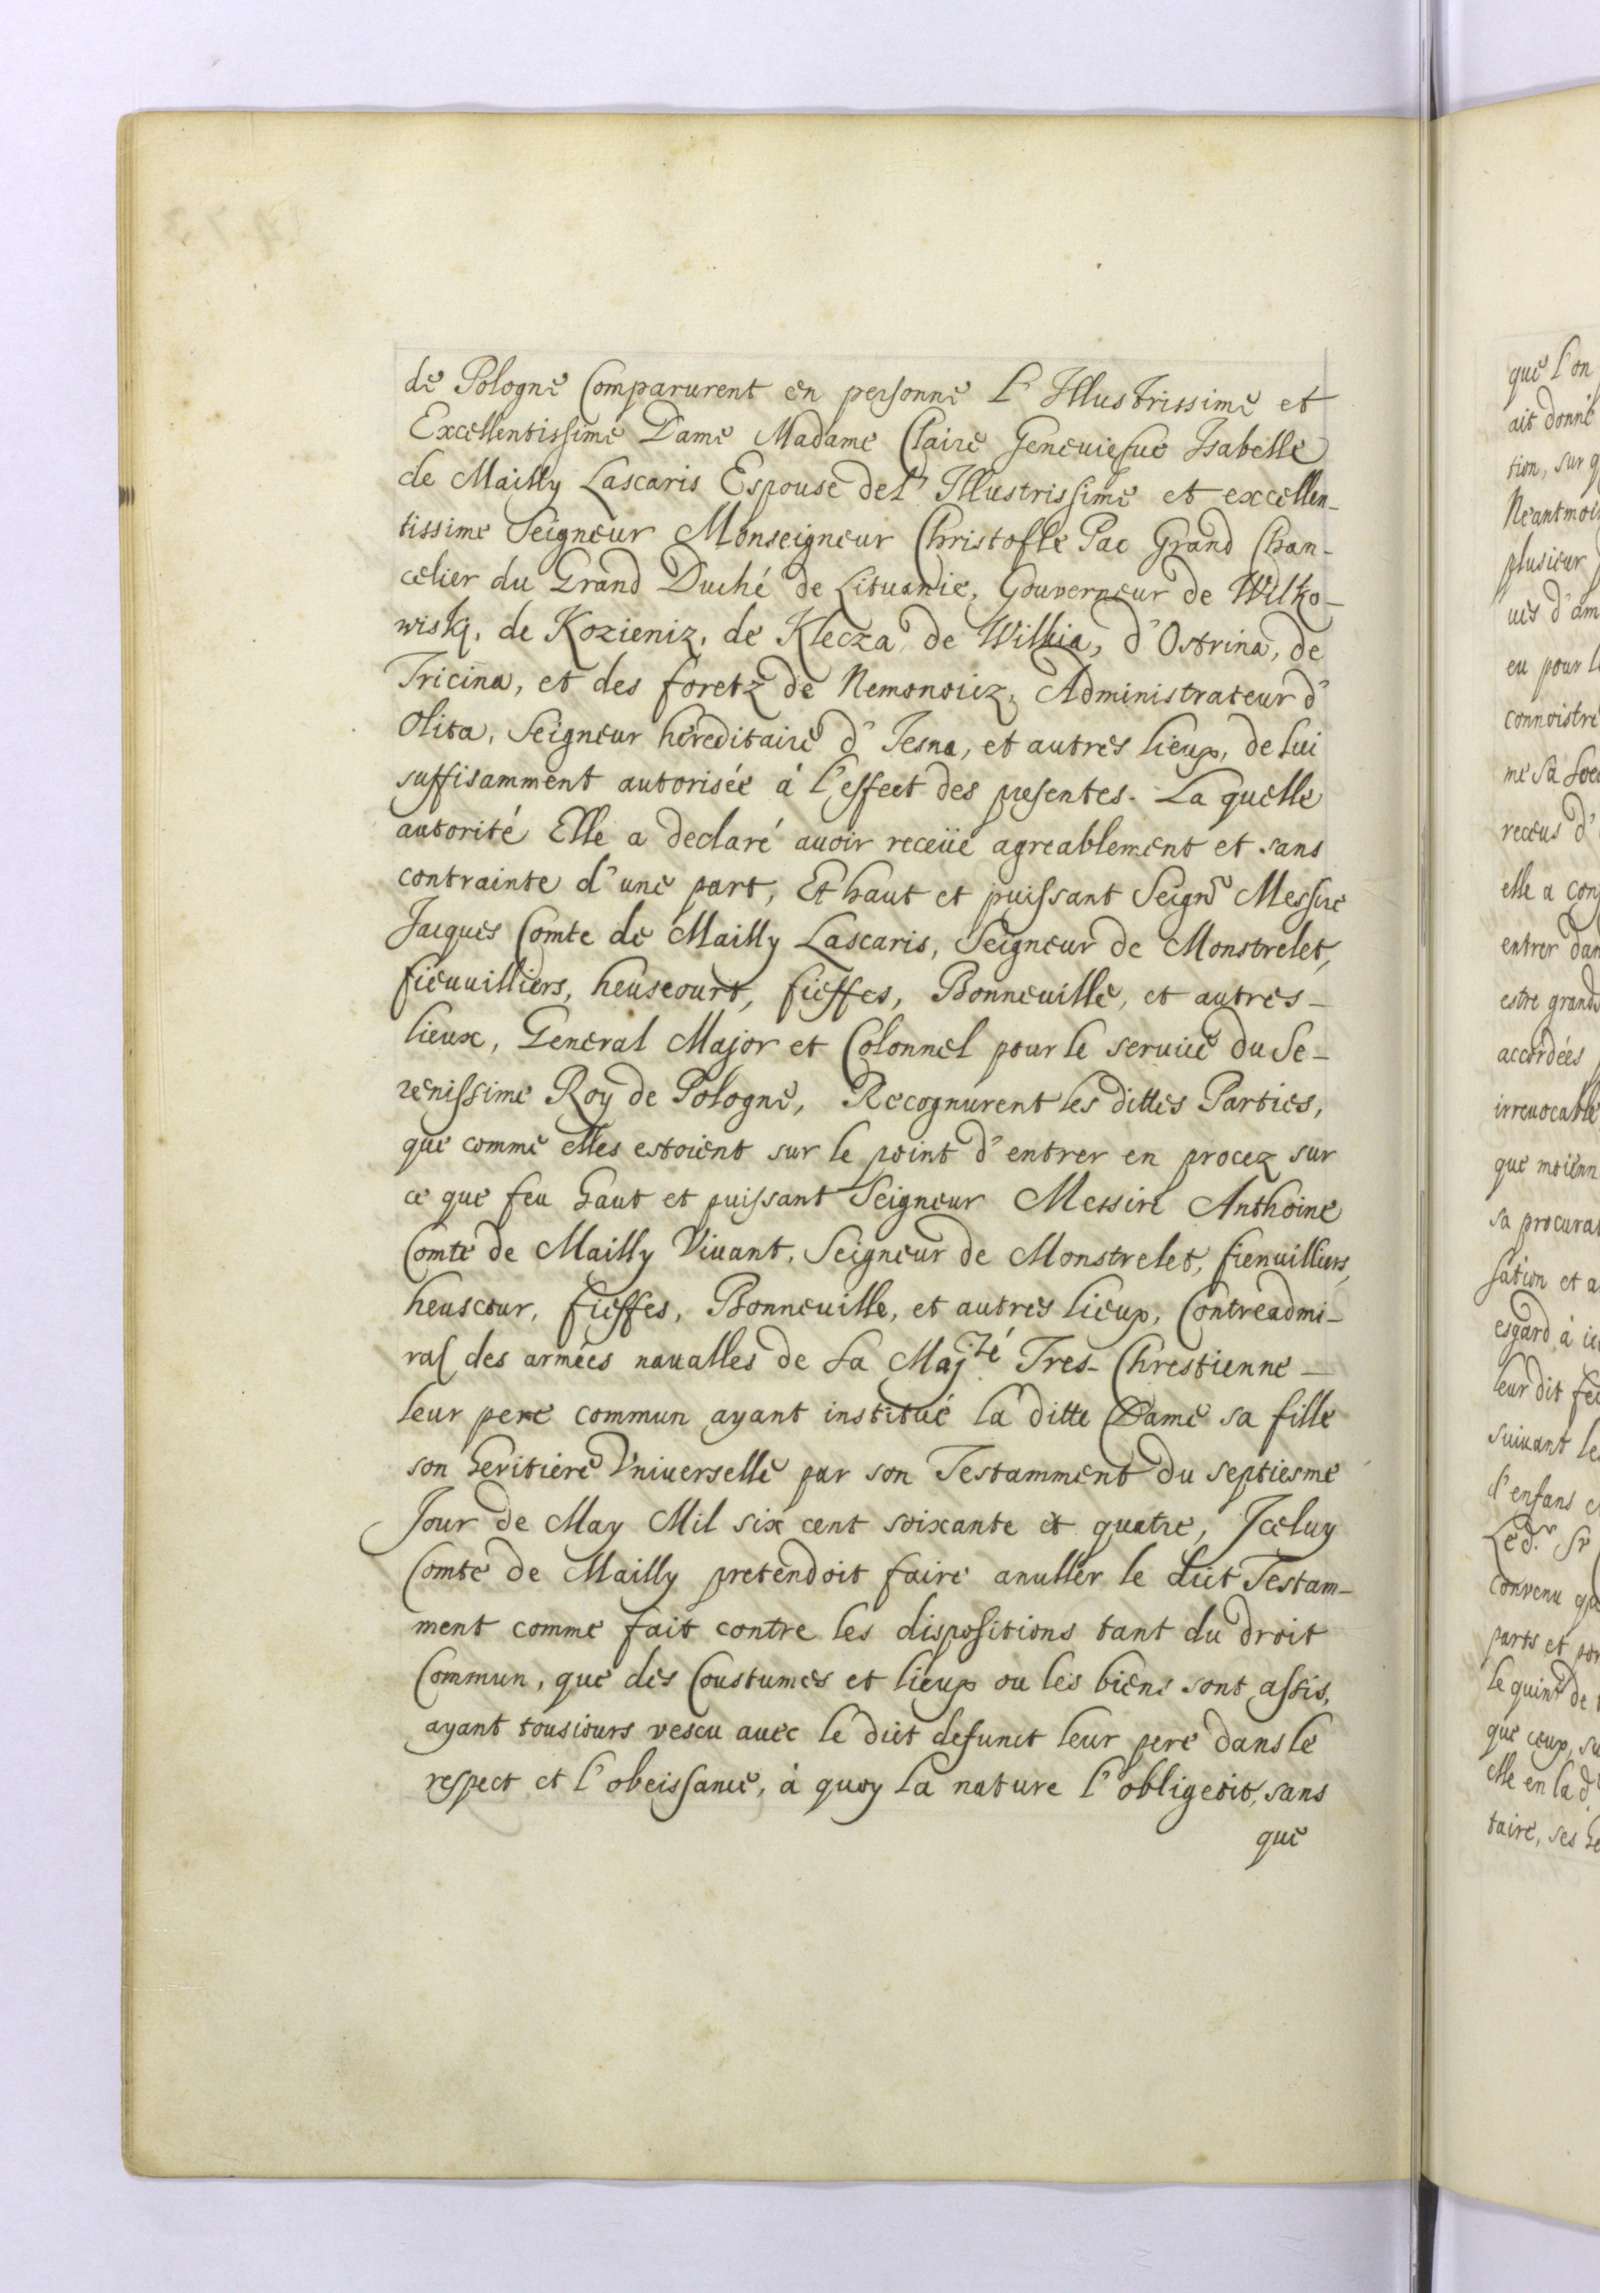 de Pologne Comparurent en personne L'Illustrissime et
Excellentissime Dame Madame Claire Geneuiefue Isabelle
de Mailly Lascaris Espouse del' Illustrissime et excellen-
tissime Seigneur Monseigneur Christofle Pac Grand Chan-
celier du Grand Duché de Lituanie, Gouverneur de Wilko-
wiski, de Kozieniz, de Klecza, de Wilkia, d'Ostrina, de
Tricina, et des foretz de Nemonoiiz, Administrateur d'
Olita, Seigneur hereditaire d'Iesna, et autres lieux, de lui
suffisamment autorisée à l'effect des presentes. La quelle
autorité Elle a declaré auoir receüe agreablement et sans
contrainte d'une part, Et haut et puissant Seignr Messire
Jacques Comte de Mailly Lascaris, Seigneur de Monstrelet,
fieuuilliers, heuscourt, fieffes, Bonneuille, et autres-
lieux, General Major et Colonnel pour le seruice du Se-
renissime Roy de Pologne, Recognurent les dittes Parties,
que comme elles estoient sur le point d'entrer en procez sur
ce que feu haut et puissant Seigneur Messire Anthoine
Comte de Mailly Viuant, Seigneur de Monstrelet, fienuilliers,
heuscour, fieffes, Bonneuille, et autres lieux, Contreadmi-
ral des armées naualles de Sa Maj.té Tres-Chrestienne-
leur pere commun ayant institué la ditte Dame sa fille
son heritiere Vniuerselle par son Testamment du septiesme
Jour de May Mil six cent soixante et quatre, Iceluy
Comte de Mailly pretendoit faire anuller le dict Testam-
ment comme fait contre les dispositions tant du droit
Commun, que des Coustumes et lieux ou les biens sont assis,
ayant tousiours vescu auec le dict defunct leur pere dans le
respect et l'obeissance, à quoy la nature l'obligeoit, sans
que
que l'on
ait donné
tion, sur
plusieur
eu pour
connoistre
me sa
receus d'
elle a
entrer
estre
accordées
irreuocable
que
et a
esgard à
leur dit
suiuant
d'enfans
Led.
convenu
parts et
le quint de
que ceux,
elle en la
taire, ses